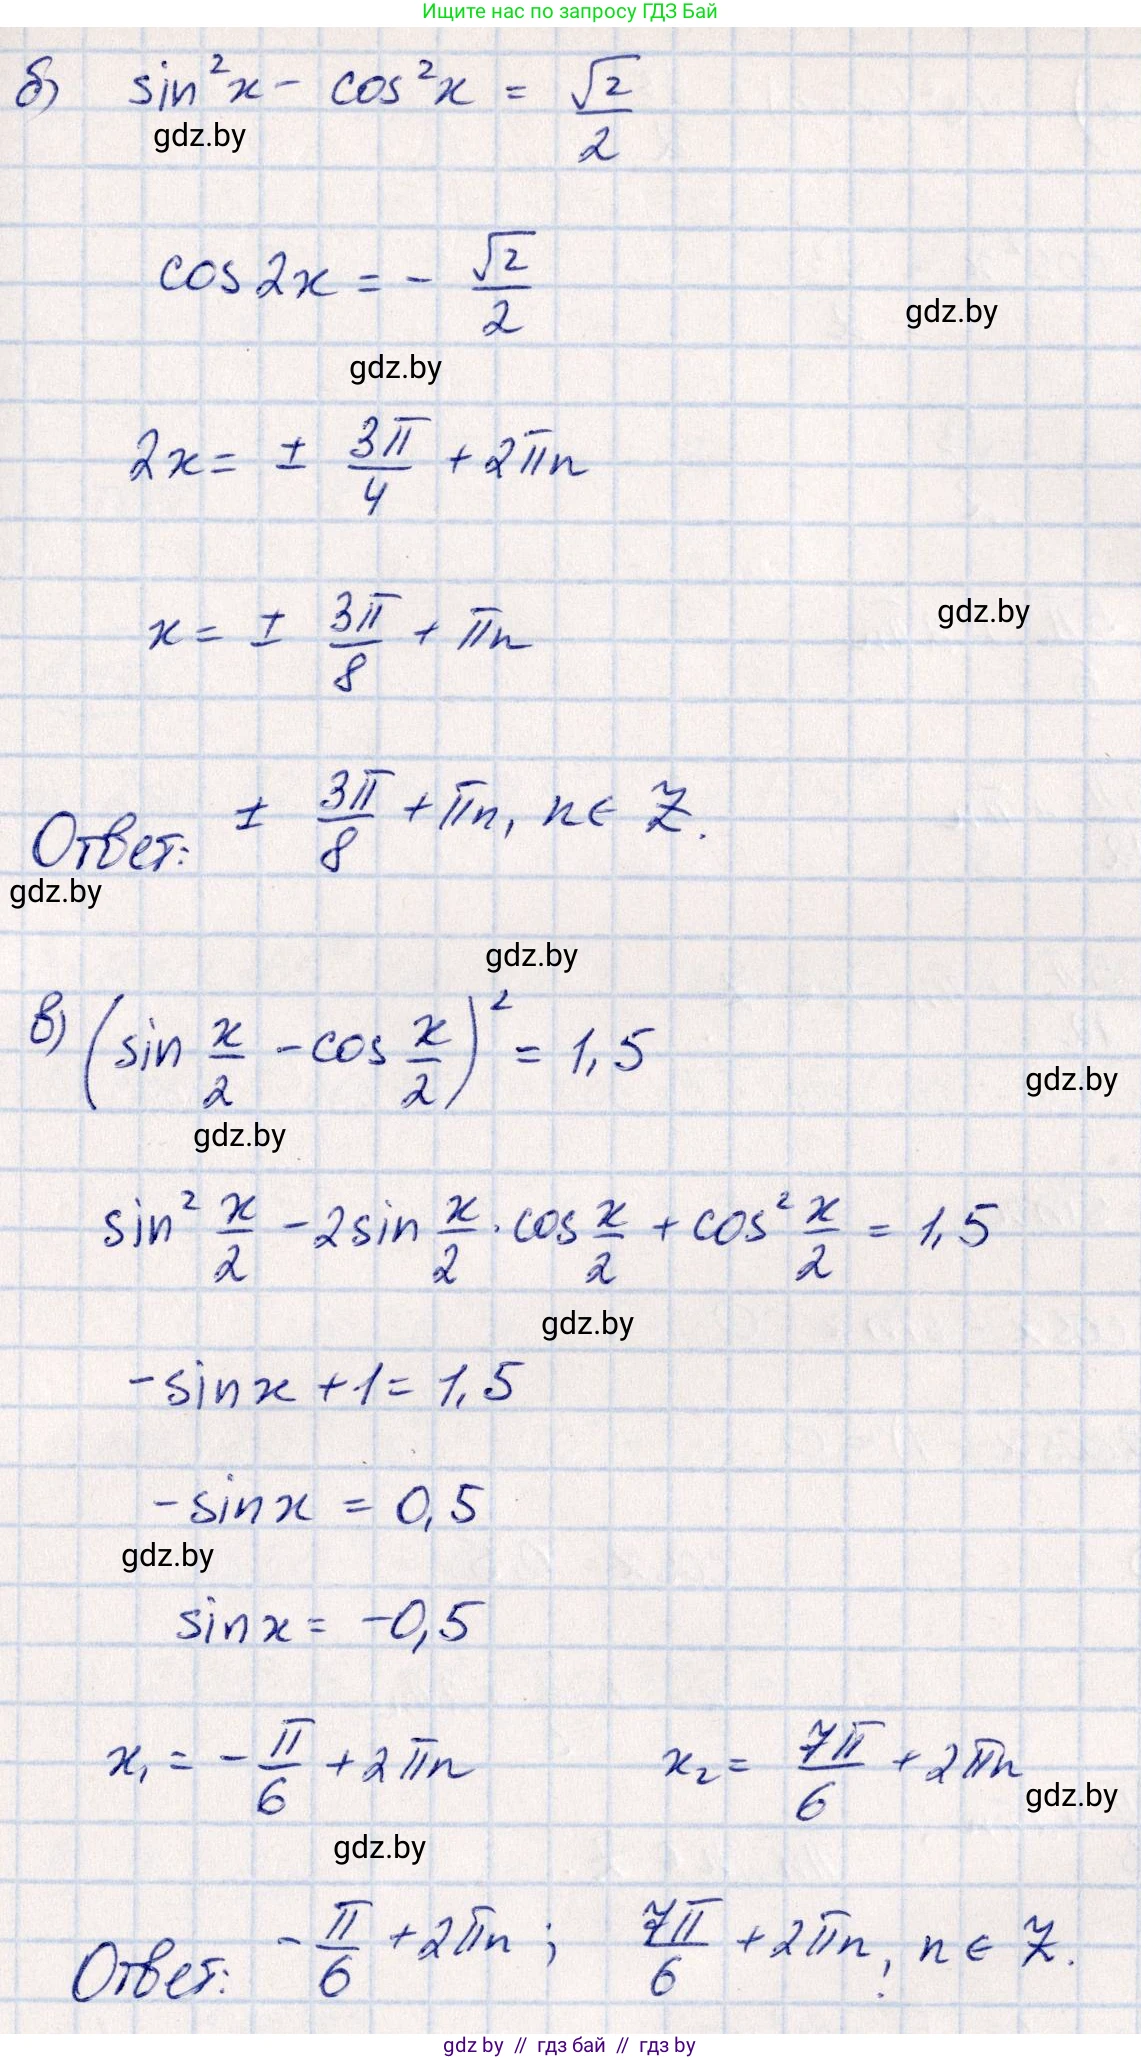 Ищите нас по запросу ГДЗ Бай
б) sin²x - cos²x = √2/2
gdz.by
cos2x = - √2/2
gdz.by
gdz.by
2x = ± 3π/4 + 2πn
x = ± 3π/8 + πn
gdz.by
Ответ: ± 3π/8 + πn, n ∈ Z.
gdz.by
gdz.by
в) (sin x/2 - cos x/2)² = 1,5
gdz.by
gdz.by
sin² x/2 - 2sin x/2 · cos x/2 + cos² x/2 = 1,5
gdz.by
-sinx + 1 = 1,5
-sinx = 0,5
gdz.by
sinx = -0,5
x₁ = - π/6 + 2πn x₂ = 7π/6 + 2πn
gdz.by
gdz.by
Ответ: - π/6 + 2πn ; 7π/6 + 2πn, n ∈ Z.
gdz by // гдз бай // гдз by